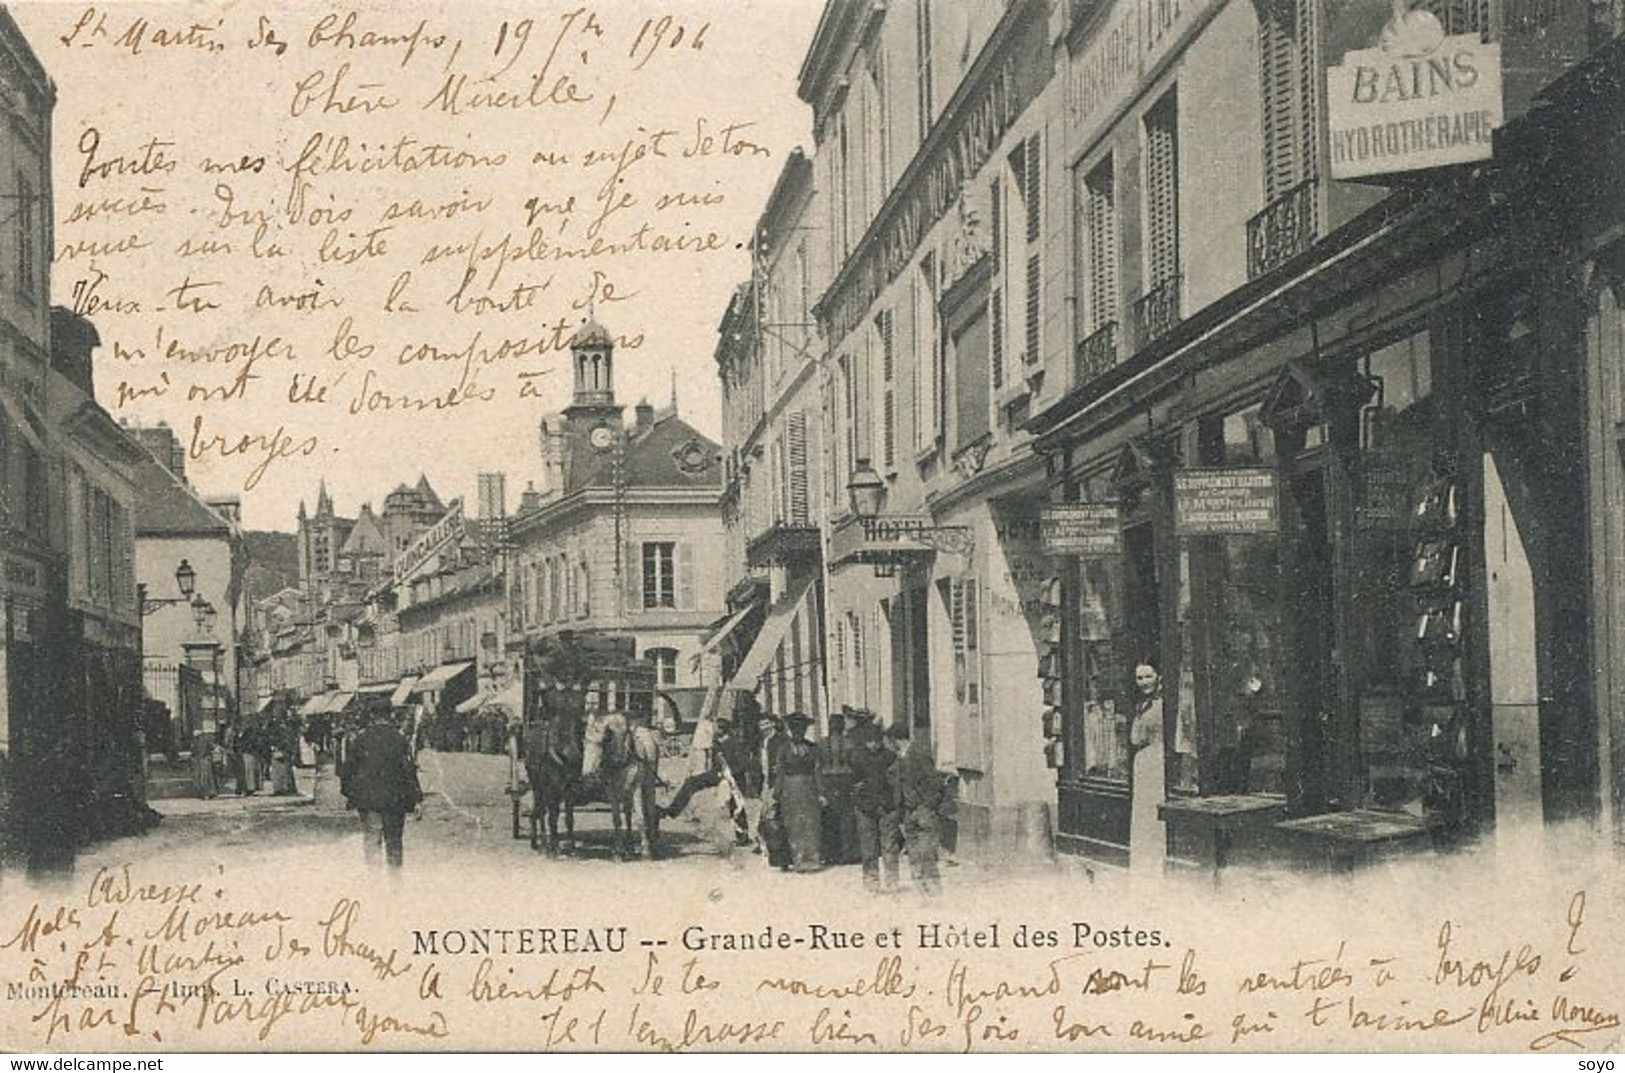 St Martin des Champs, 19 7bre 1906
Chère Mireille,
Toutes mes félicitations au sujet de ton
succès. Tu dois savoir que je suis
reçue sur la liste supplémentaire.
Veux-tu avoir la bonté de
m'envoyer les compositions
qui ont été données à
Troyes.
BAINS
HYDROTHÉRAPIE
HOTEL
QUINCAILLERIE
LE SUPPLÉMENT ILLUSTRÉ
Adresse:
Melle A. Moreau
à St Martin des Champs
par St Fargeau
Yonne
MONTEREAU -- Grande-Rue et Hôtel des Postes.
Montereau. – Imp. L. CASTERA.
A bientôt de tes nouvelles. Quand sont les rentrées à Troyes?
Je t'embrasse bien des fois Ton amie qui t'aime Moreau
soyo